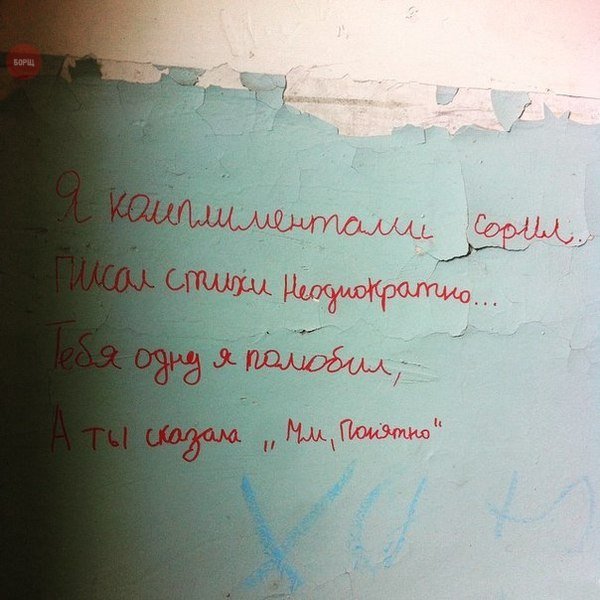 БОРЩ
Я комплиментами сорил.
Писал стихи Неоднократно...
Тебя одну я полюбил,
А ты сказала „Мм, Понятно"